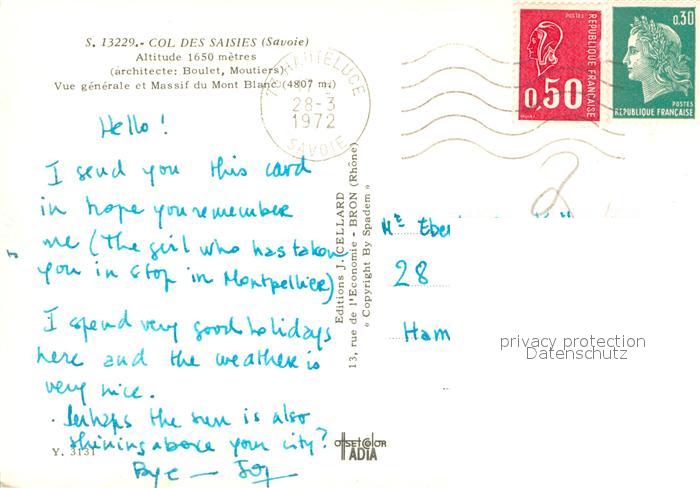 S. 13229.- COL DES SAISIES (Savoie)
Altitude 1650 mètres
(architecte: Boulet, Moutiers)
Vue générale et Massif du Mont Blanc (4807 m.)
HAUTELUCE
28-3
1972
SAVOIE
POSTES
RÉPUBLIQUE FRANÇAISE
0,50
0,30
POSTES
RÉPUBLIQUE FRANÇAISE
Hello!
I send you this card
in hope you remember
me (the girl who has taken
you in stop in Montpellier)
I spend very good holidays
here and the weather is
very nice.
. Perhaps the sun is also
shining above your city?
Bye —
Y. 3131
Editions J. CELLARD
13, rue de l'Economie - BRON (Rhône)
« Copyright By Spadem »
OFFSETCOLOR
IADIA
Mr Eber
28
Ham
privacy protection
Datenschutz